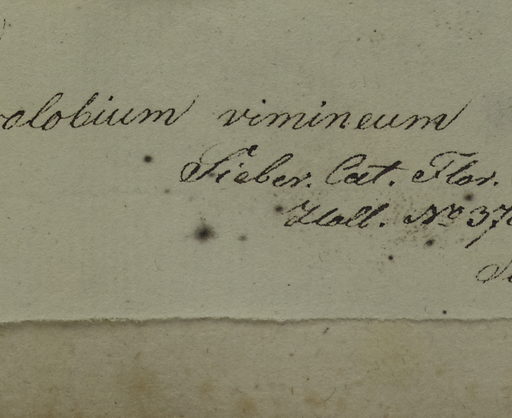 olobium vimineum
Sieber. Cat. Flor.
Holl. No 37